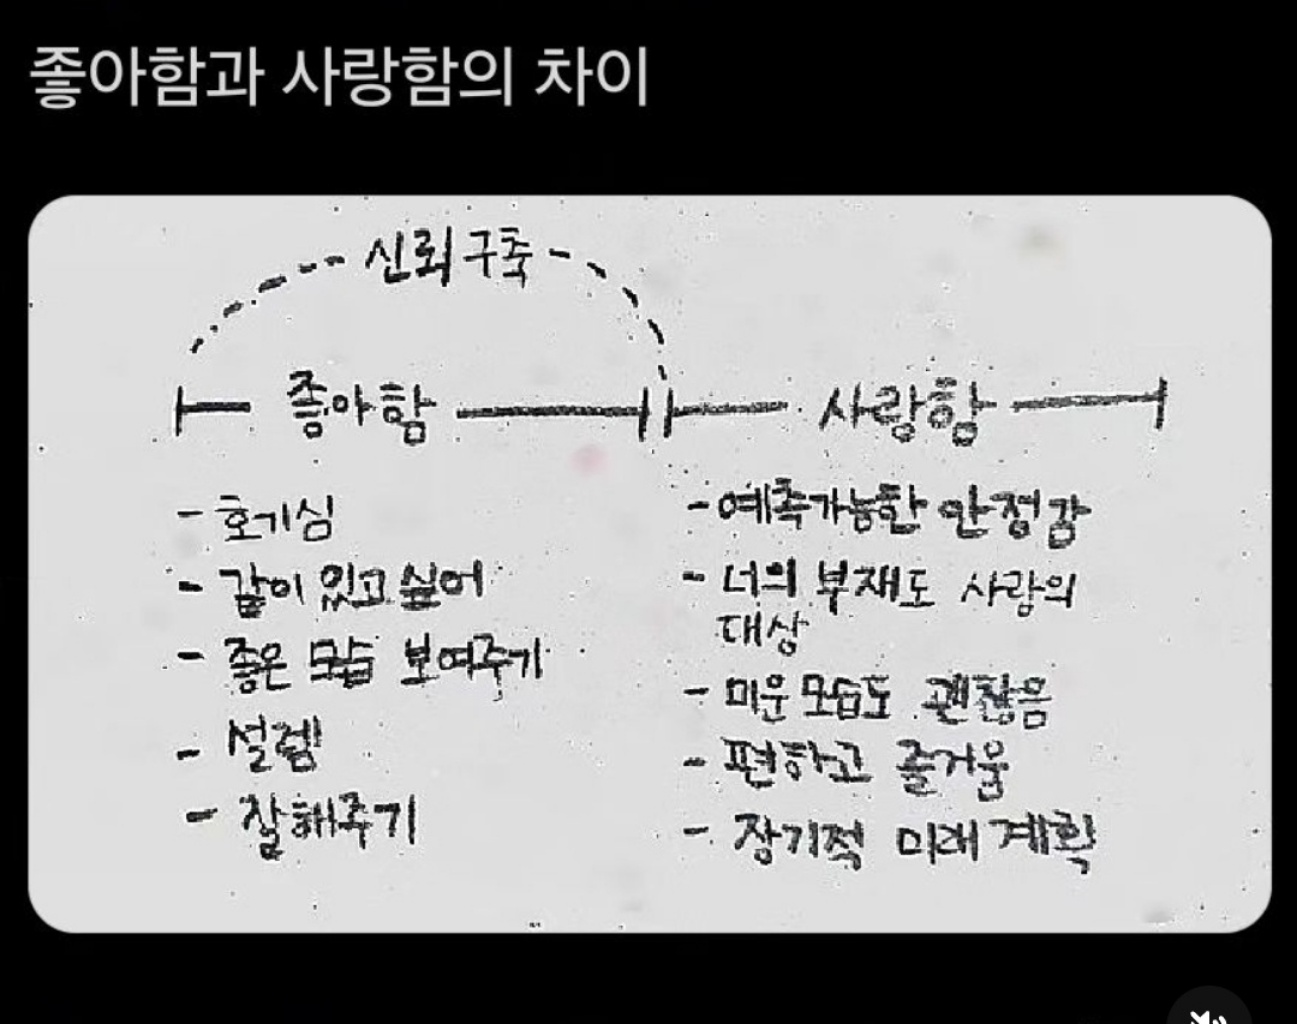 좋아함과 사랑함의 차이
신뢰구축
좋아함
사랑함
- 호기심
- 같이 있고 싶어
- 좋은 모습 보여주기
- 설렘!
- 잘해주기
- 예측가능한 안정감
- 너의 부재도 사랑의
대상
- 미운 모습도 괜찮음
- 편하고 즐거움
- 장기적 미래 계획